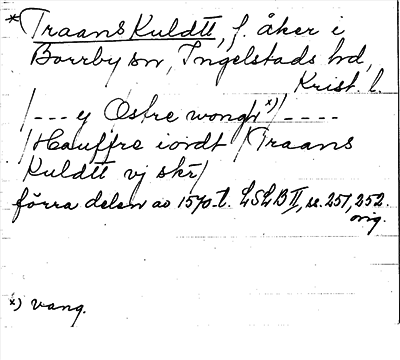 *Traans Kuldtt, f. åker i
Borrby sn, Ingelstads hd,
Krist. l.
/--- y Østre wongh x)/----
/Hauffre iordt /Traans
Kuldtt vj skr/
förra delen av 1570-t. LSLB II, s. 251, 252.
orig.
x) vang.